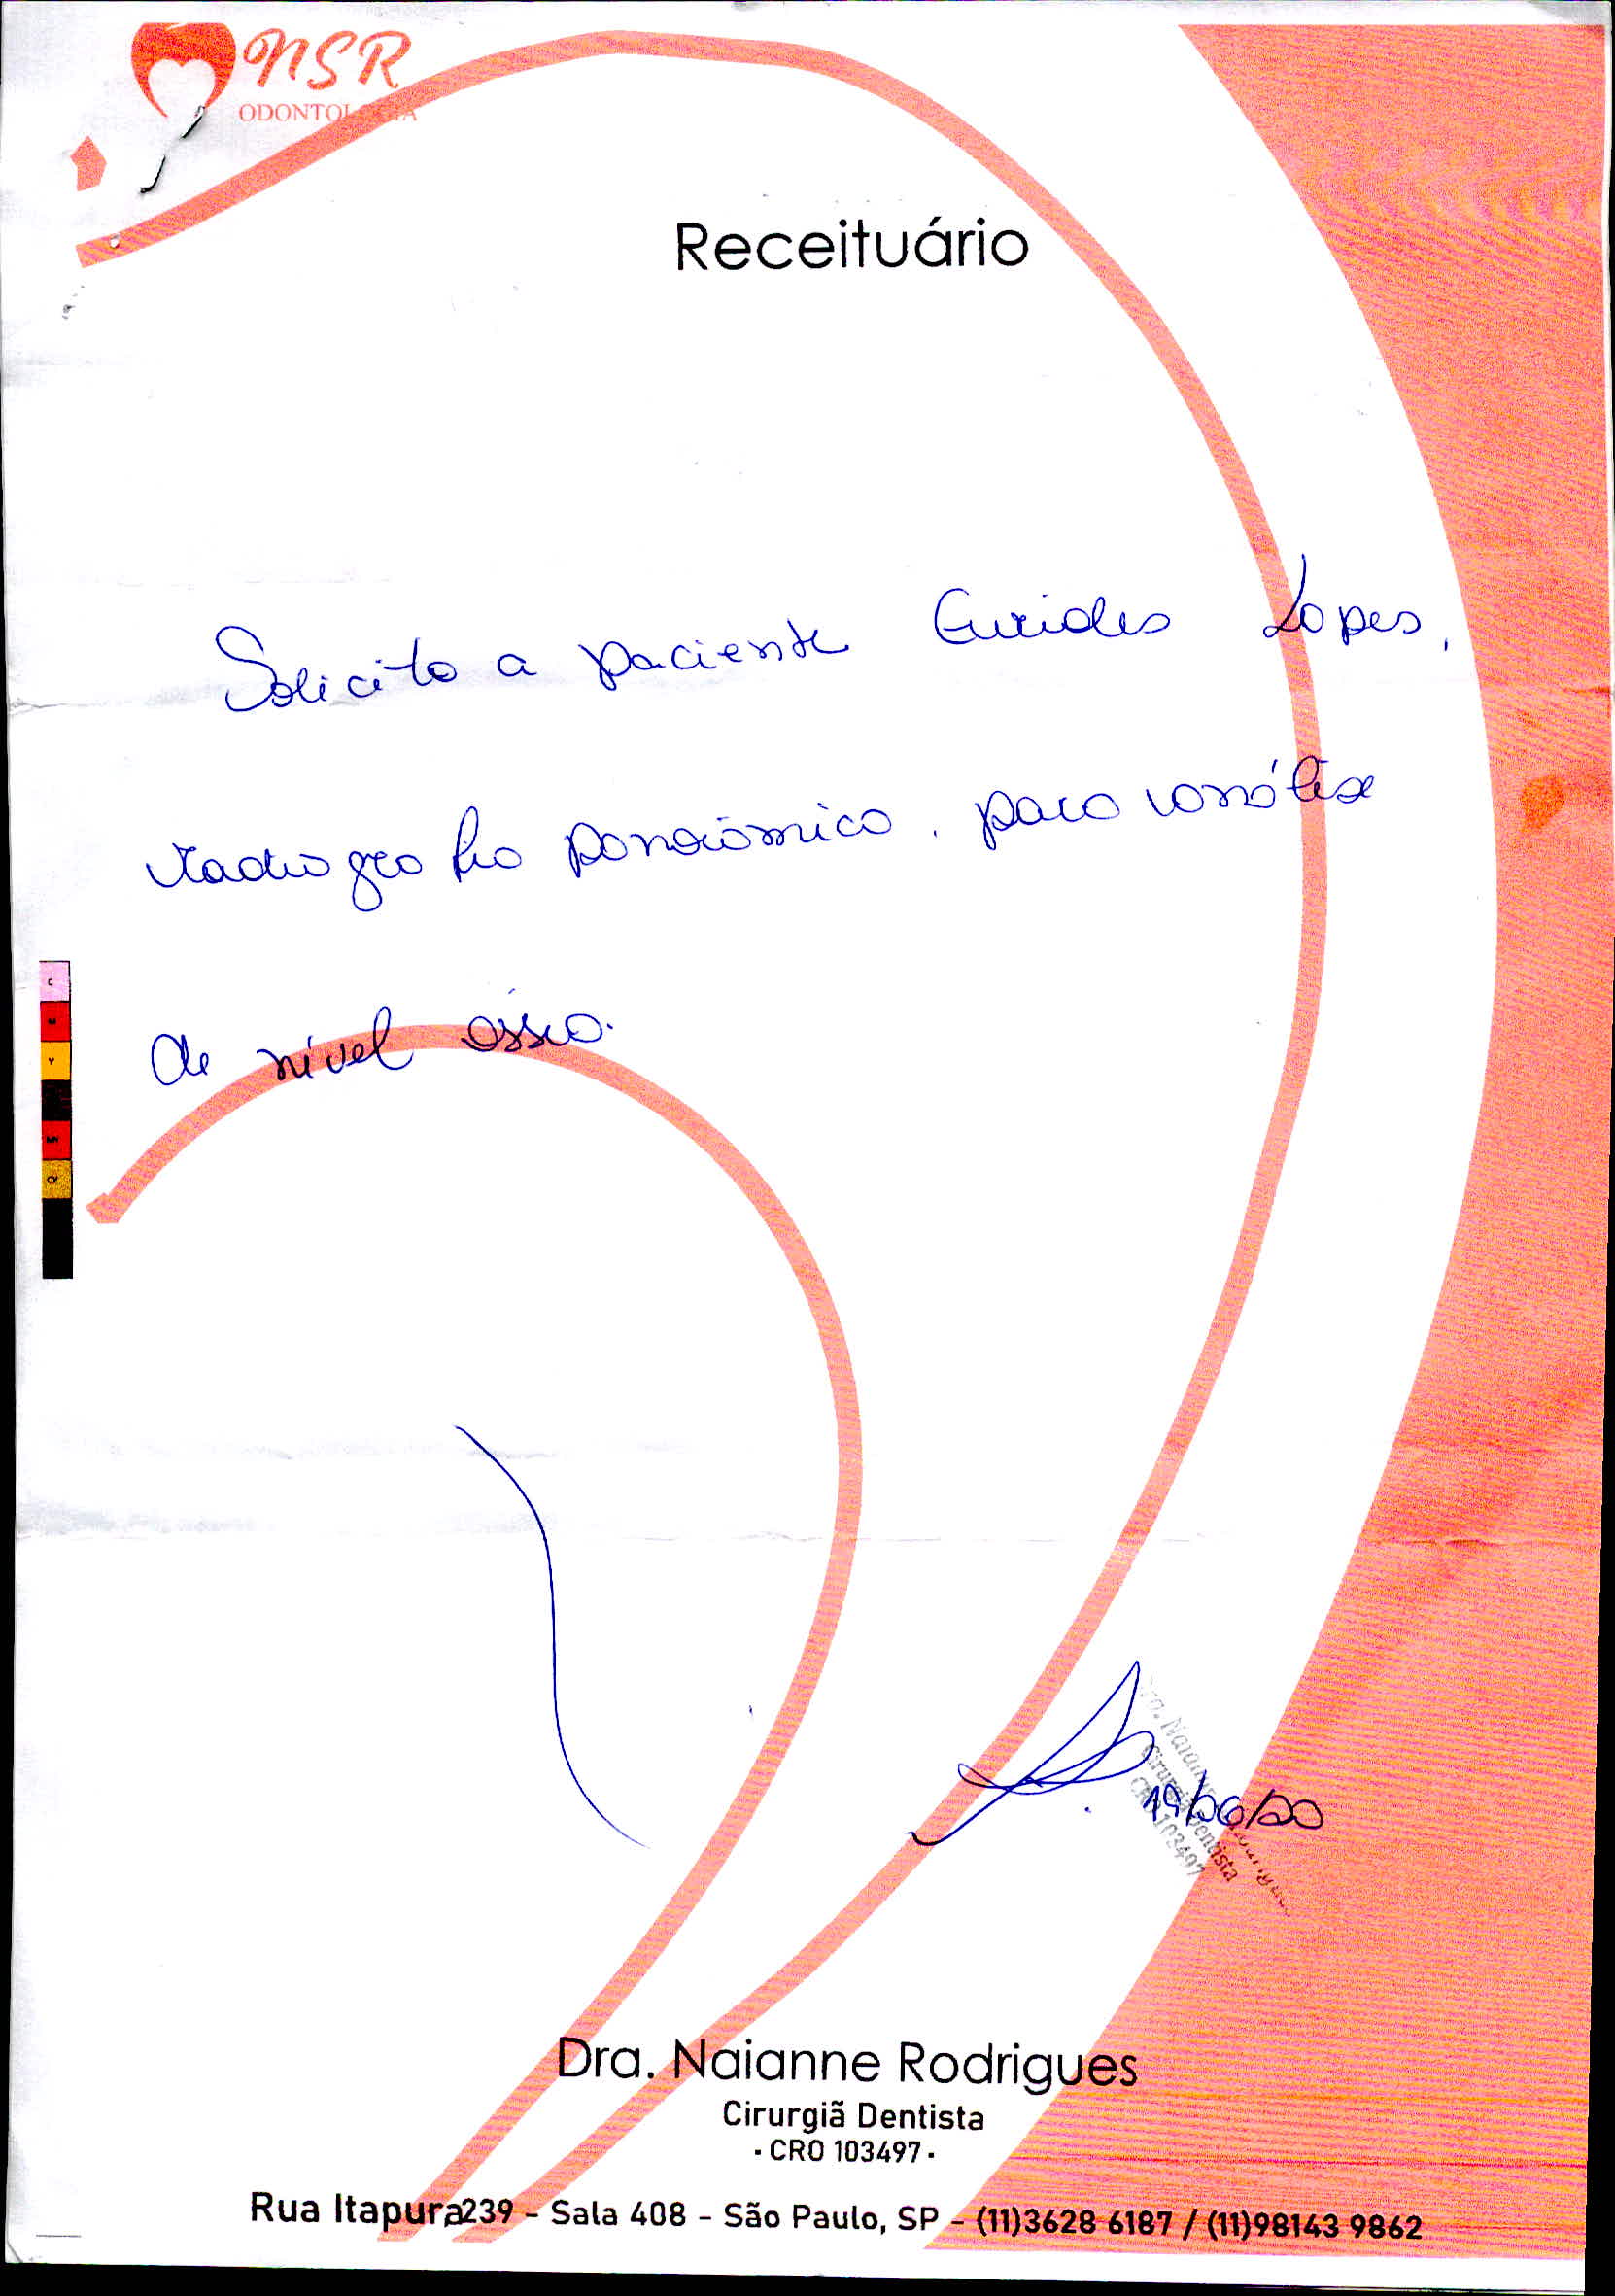 NSR
ODONTOLOGIA
Receituário
Solicito a paciente Eurides Lopes,
radiografia panorâmica. para análise
de nível ósseo.
C
M
Y
MY
CY
Cirurgiã Dentista
CRO 103497
19/06/20
Dra. Naianne Rodrigues
Cirurgiã Dentista
- CRO 103497 -
Rua Itapura239 - Sala 408 - São Paulo, SP - (11)3628 6187 / (11)98143 9862